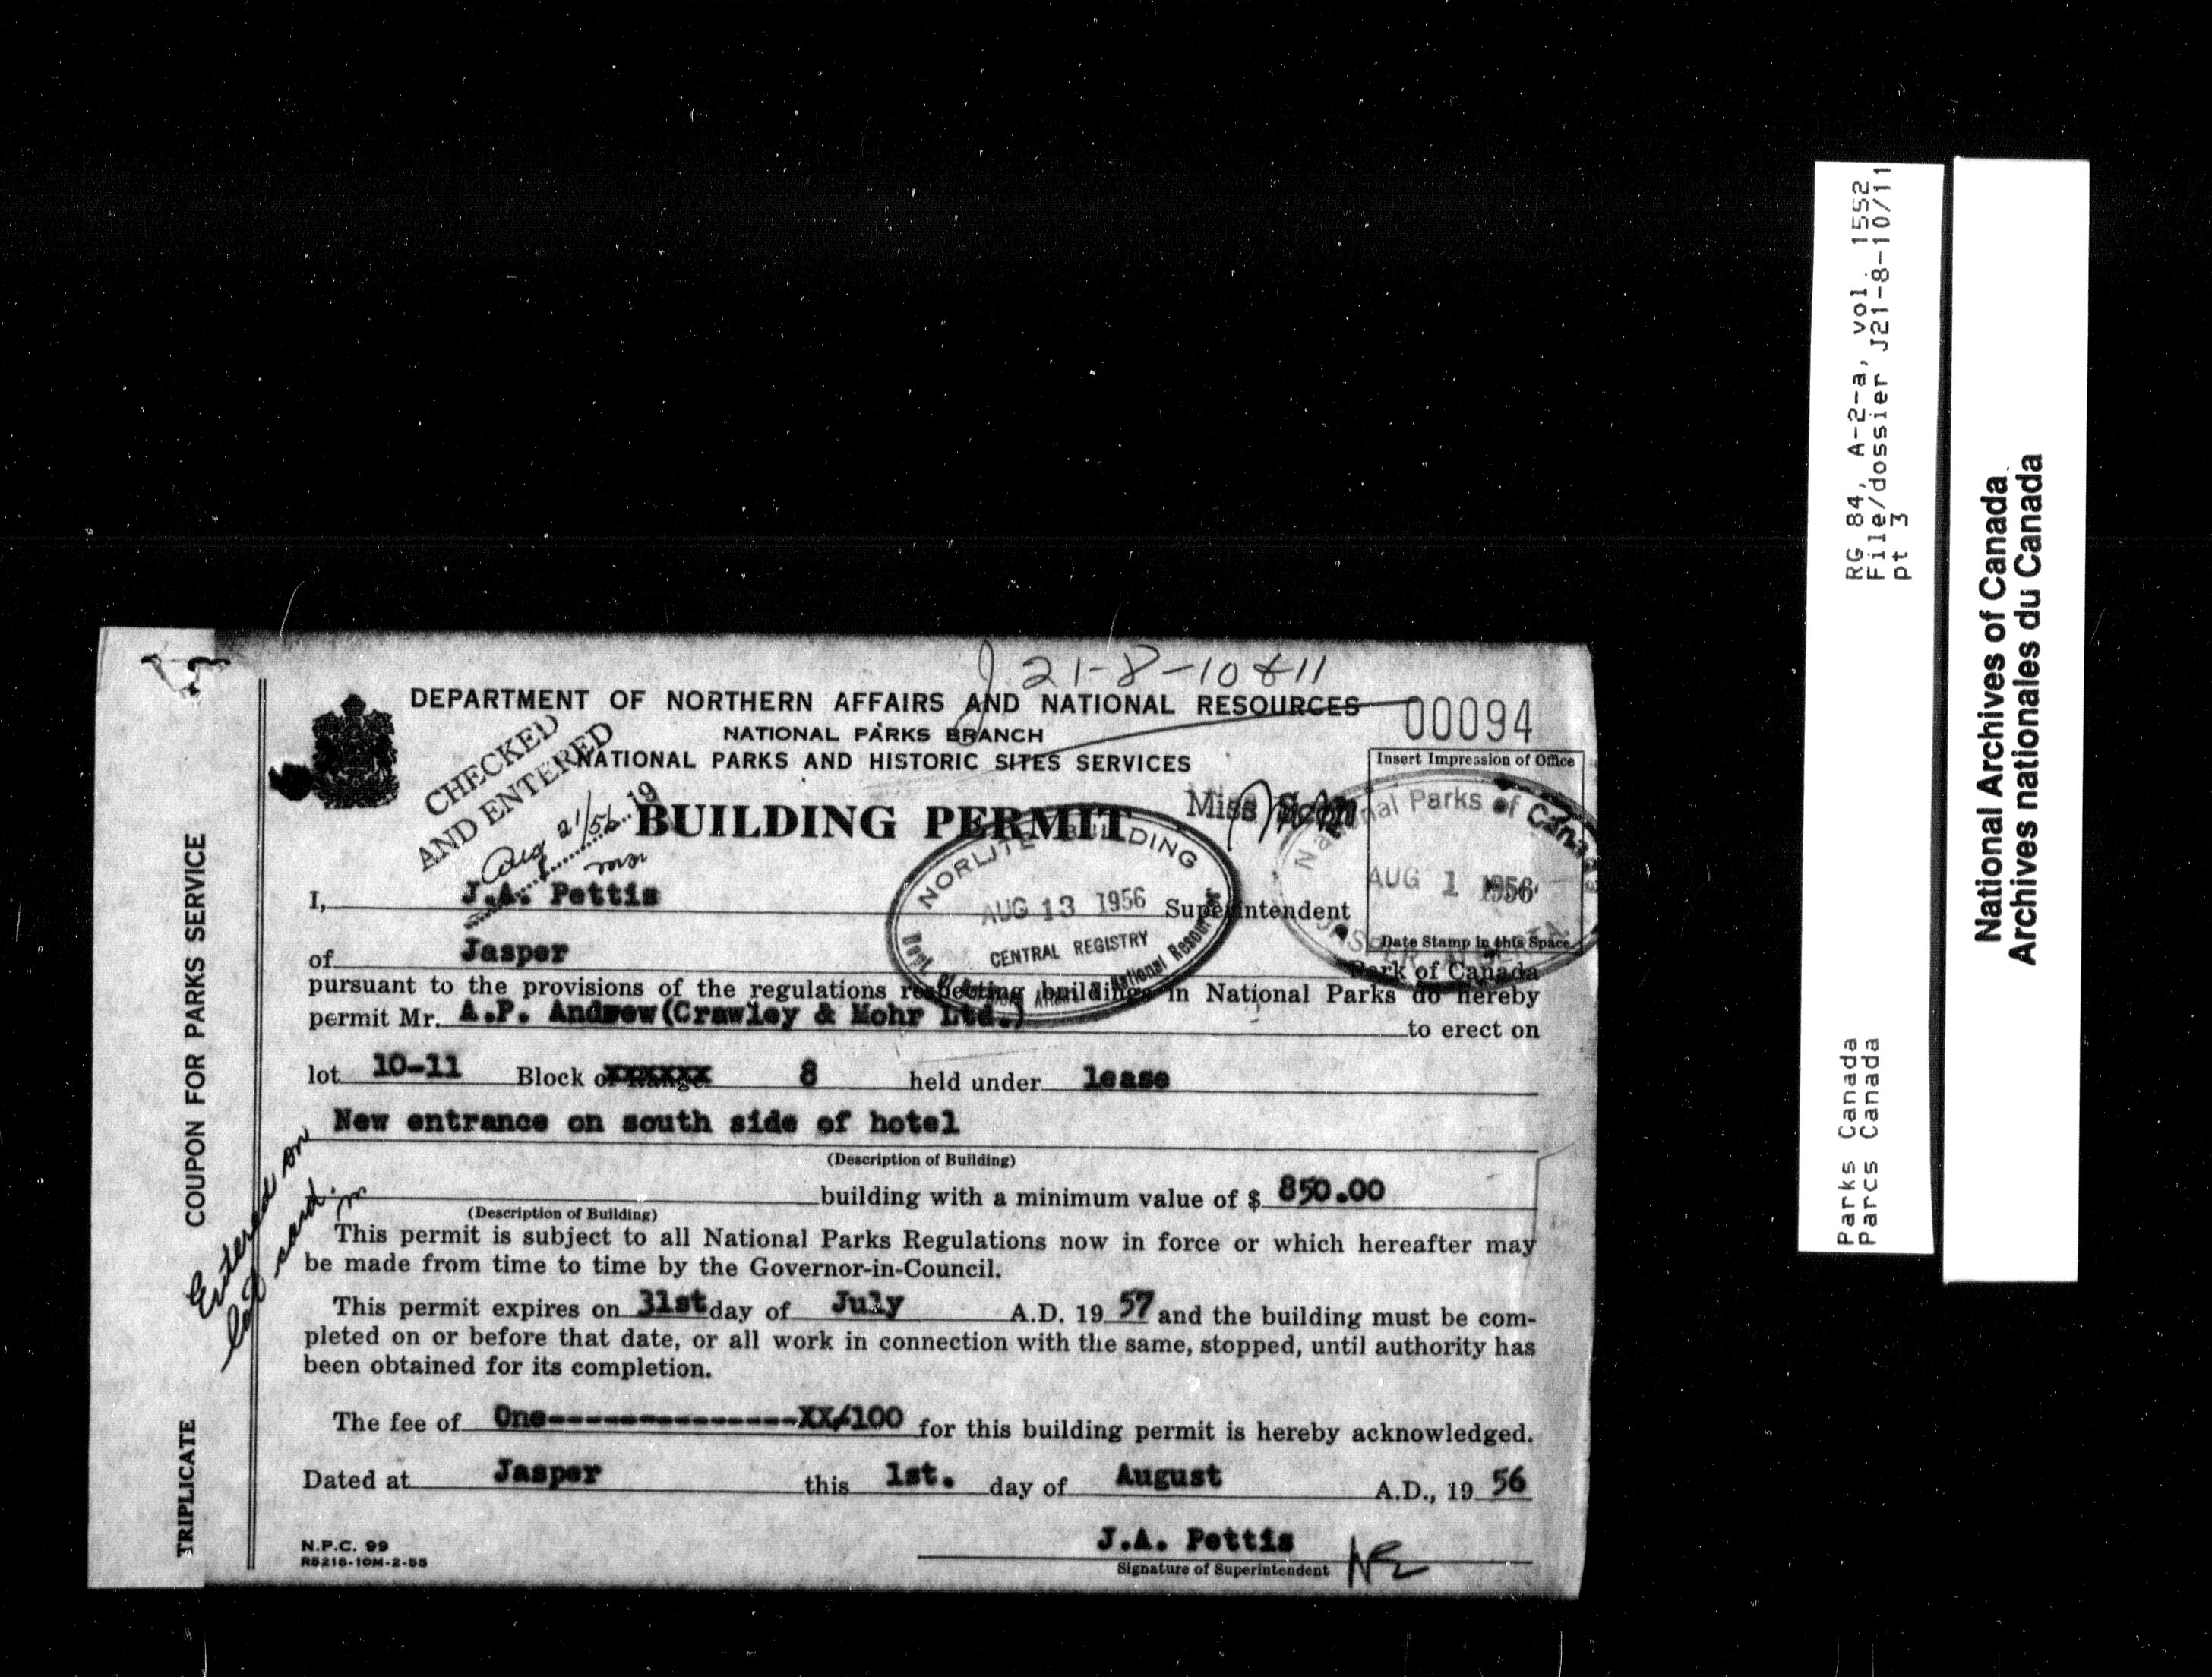 J 21-8-10 & 11
DEPARTMENT OF NORTHERN AFFAIRS AND NATIONAL RESOURCES
00094
NATIONAL PARKS BRANCH
NATIONAL PARKS AND HISTORIC SITES SERVICES
Insert Impression of Office
CHECKED
AND ENTERED
Aug 21/56 19
BUILDING PERMIT
Miss
National Parks of Canada
AUG 1 1956
JASPER
Date Stamp in this Space
NORLITE BUILDING
AUG 13 1956
CENTRAL REGISTRY
National Resources
I, J.A. Pettis Superintendent
of Jasper Park of Canada
pursuant to the provisions of the regulations respecting buildings in National Parks do hereby
permit Mr. A.P. Andrew (Crawley & Mohr Ltd.) to erect on
lot 10-11 Block or Range 8 held under lease
New entrance on south side of hotel
(Description of Building)
building with a minimum value of $ 850.00
(Description of Building)
This permit is subject to all National Parks Regulations now in force or which hereafter may
be made from time to time by the Governor-in-Council.
This permit expires on 31st day of July A.D. 19 57 and the building must be com-
pleted on or before that date, or all work in connection with the same, stopped, until authority has
been obtained for its completion.
The fee of One---------------XX/100 for this building permit is hereby acknowledged.
Dated at Jasper this 1st. day of August A.D., 19 56
J.A. Pettis
Signature of Superintendent
N.P.C. 99
R5218-10M-2-55
COUPON FOR PARKS SERVICE
TRIPLICATE
Entered on
card.
RG 84, A-2-a, vol. 1552
File/dossier J21-8-10/11
pt 3
Parks Canada
Parcs Canada
National Archives of Canada
Archives nationales du Canada